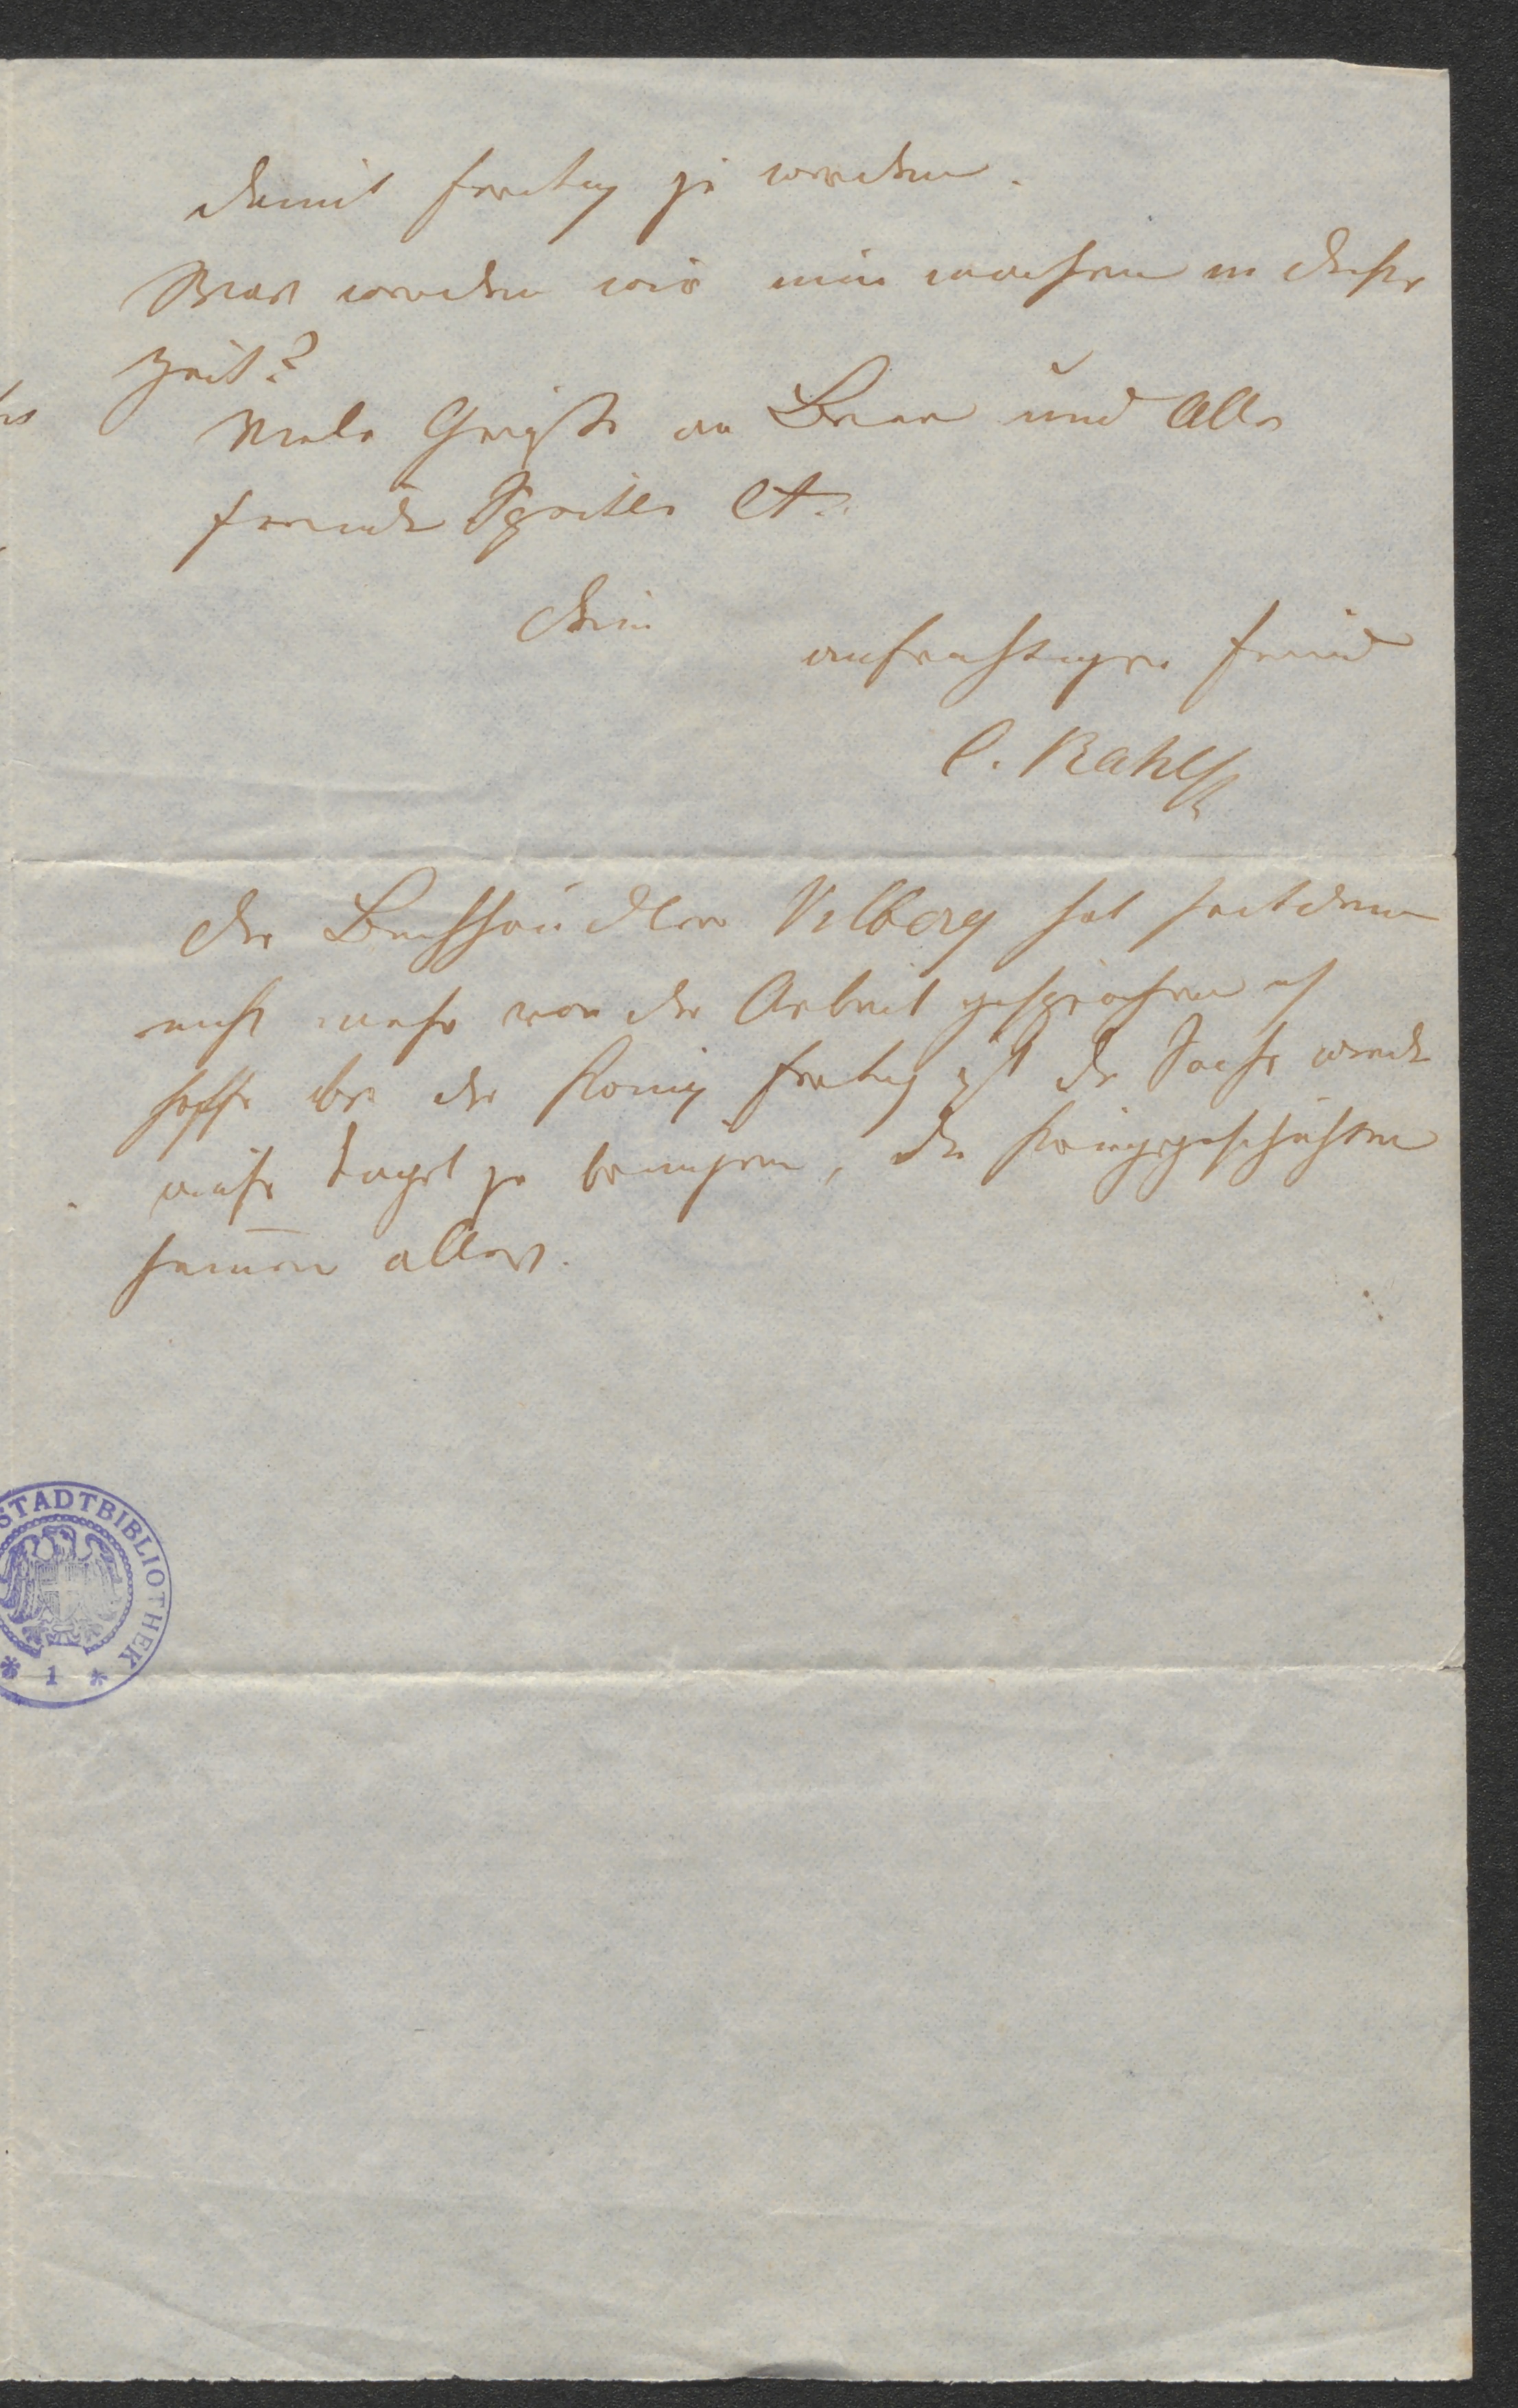 damit fertig zu werden.
Was werden wir nun machen in dieser
Zeit?
Viele Grüße an Bauer und Alle
Freunde Spitter etc.
Dein
aufrichtiger Freund
C. Rahl
Der Buchhändler Vilberg hat seitdem
nicht mehr von der Arbeit gesprochen ich
hoffe bis der König fertig ist die Sache wieder
aufs Tapet zu bringen, die Kriegsgeschichten
hem̅en alles.
STADTBIBLIOTHEK
* 1 *